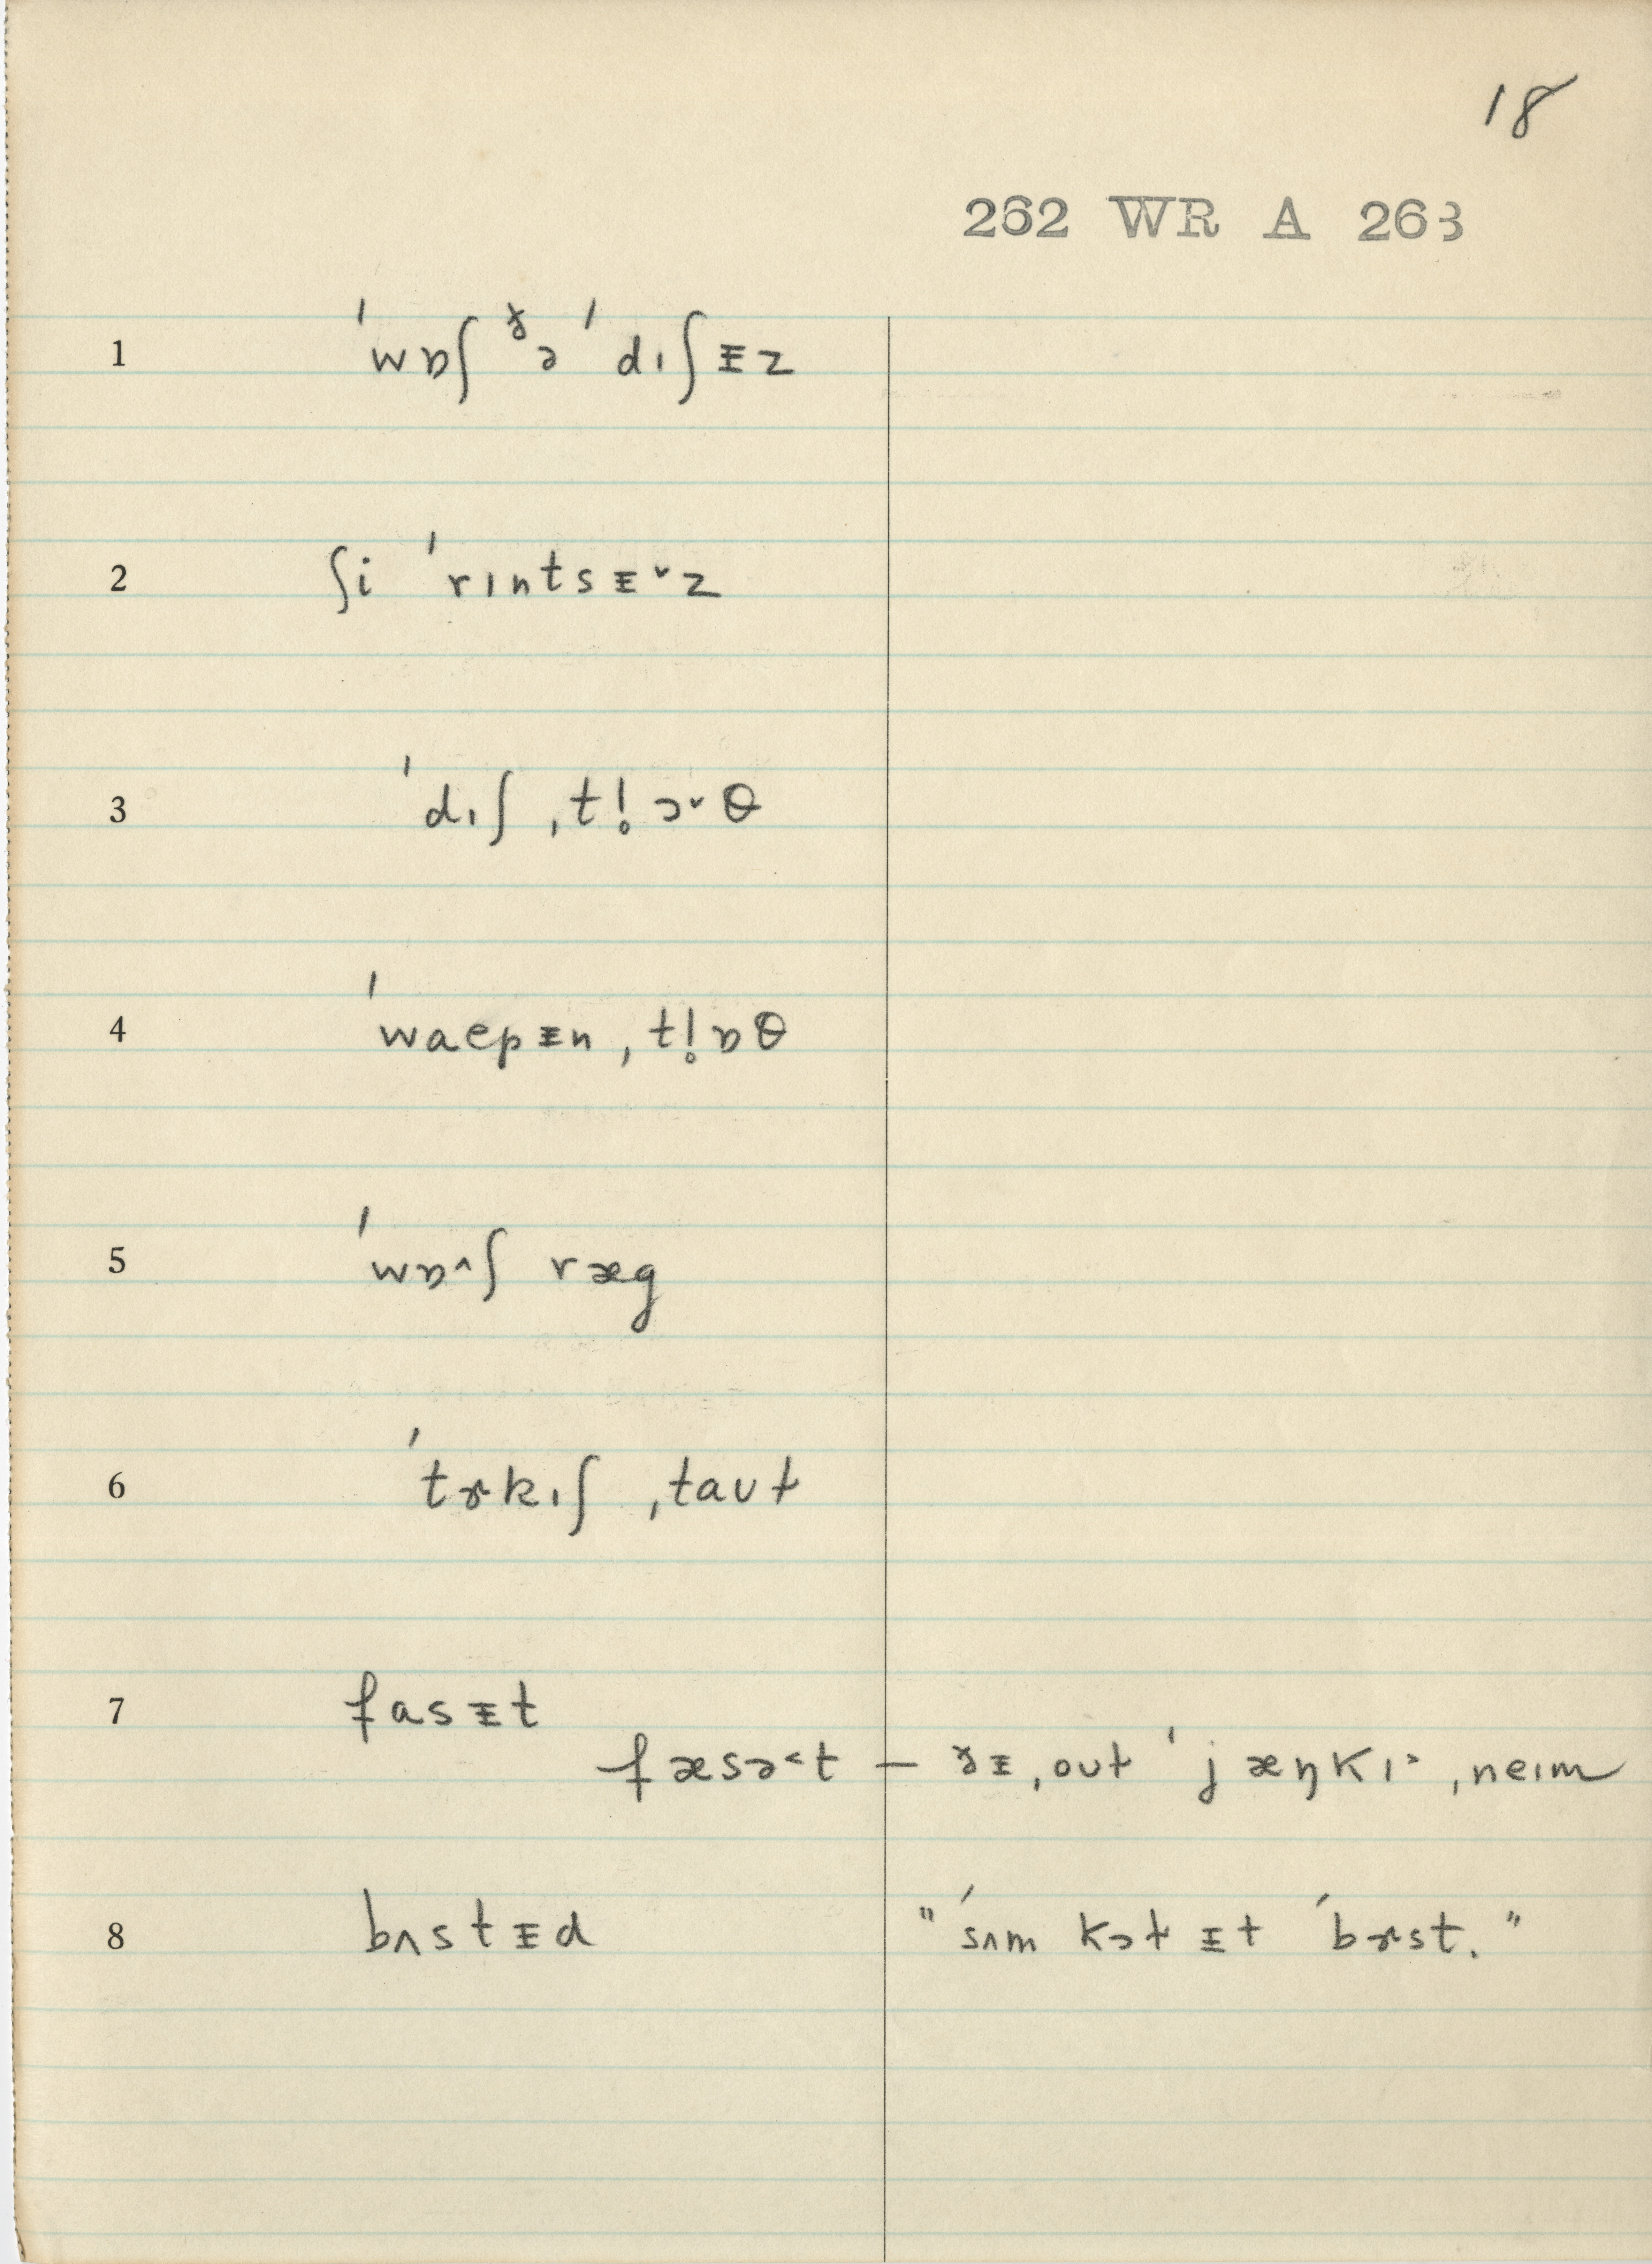 18
262 WR A 263
1 ˈwɒʃ ᵟə ˈdɪʃᵻz
2 ʃi ˈrɪntsᵻ˅z
3 ˈdɪʃ ˌtḷ!ɔ˅θ
4 ˈwaepᵻn ˌtḷ!ɒθ
5 ˈwɒ˄ʃ ræg
6 ˈtɝkɪʃ ˌtaʊɫ
7 fasᵻt
fæsə˂t – ðᵻ ˌoʊɫ ˈjæŋkɪ˃ ˌneɪm
8 bʌstᵻd "ˈsʌm kɔɫ ᵻt ˈbɝst."